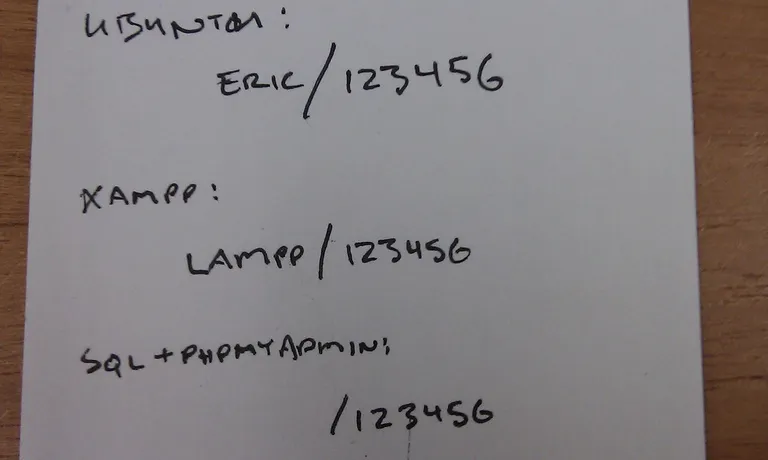 UBUNTU:
ERIC/123456
XAMPP:
LAMPP/123456
SQL+PHPMYADMIN:
/123456